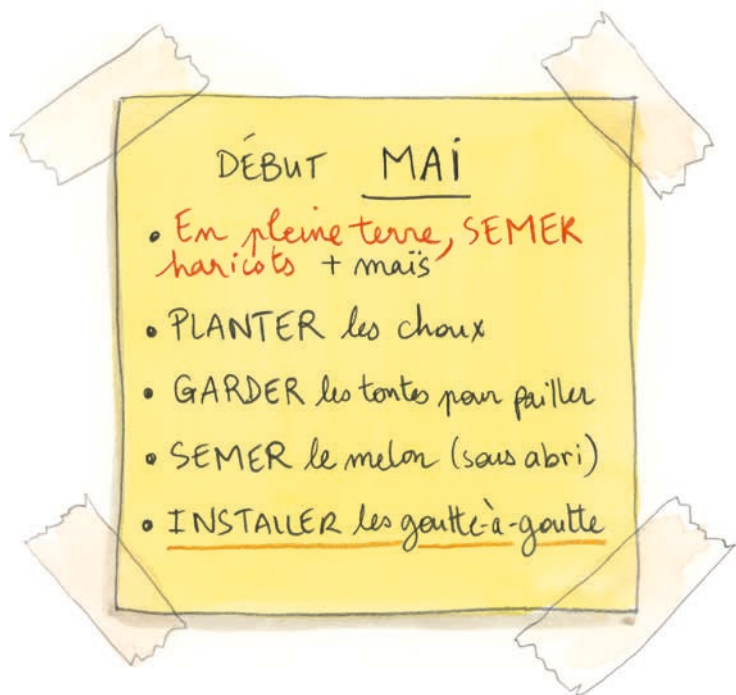 DÉBUT MAI
• En pleine terre, SEMER
haricots + maïs
• PLANTER les choux
• GARDER les tontes pour pailler
• SEMER le melon (sous abri)
• INSTALLER les goutte-à-goutte